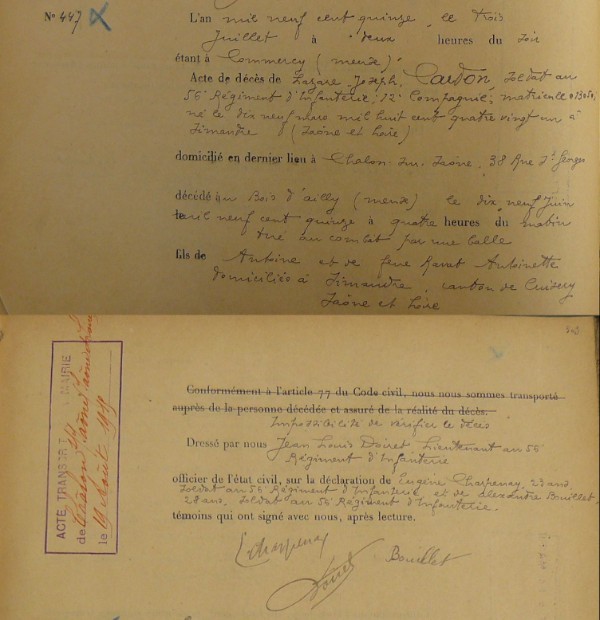 N° 447
L'an mil neuf cent quinze, le trois
Juillet à deux heures du soir
étant à Commercy (meuse).
Acte de décès de Lazare Joseph, Cardon, soldat au
56e Régiment d'Infanterie, 12e Compagnie, matricule
né le dix neuf mars mil huit cent quatre vingt un à
Simandre (Saône et Loire)
domicilié en dernier lieu à Chalon sur Saône, 38 Rue St Georges
décédé au Bois d'ailly (meuse) le dix neuf Juin
mil neuf cent quinze à quatre heures du matin
tué au combat par une balle
fils de Antoine et de feue Ravat Antoinette
domiciliés à Simandre, canton de Cuisery
Saône et Loire
ACTE TRANSPORT MAIRIE
de Chalon s/ Saône (Saône & Loire)
le 19 Août 1919
Conformément à l'article 77 du Code civil, nous nous sommes transporté
auprès de la personne décédée et assuré de la réalité du décès.
Impossibilité de vérifier le décès
Dressé par nous Jean Louis Doiret Lieutenant au 56
Régiment d'Infanterie
officier de l'état civil, sur la déclaration de Eugène Charpenay, 23 ans
Soldat au 56e Régiment d'Infanterie et de Alexandre Bouillet
28 ans, Soldat au 56e Régiment d'Infanterie.
témoins qui ont signé avec nous, après lecture.
E Charpenay
Doiret
Bouillet